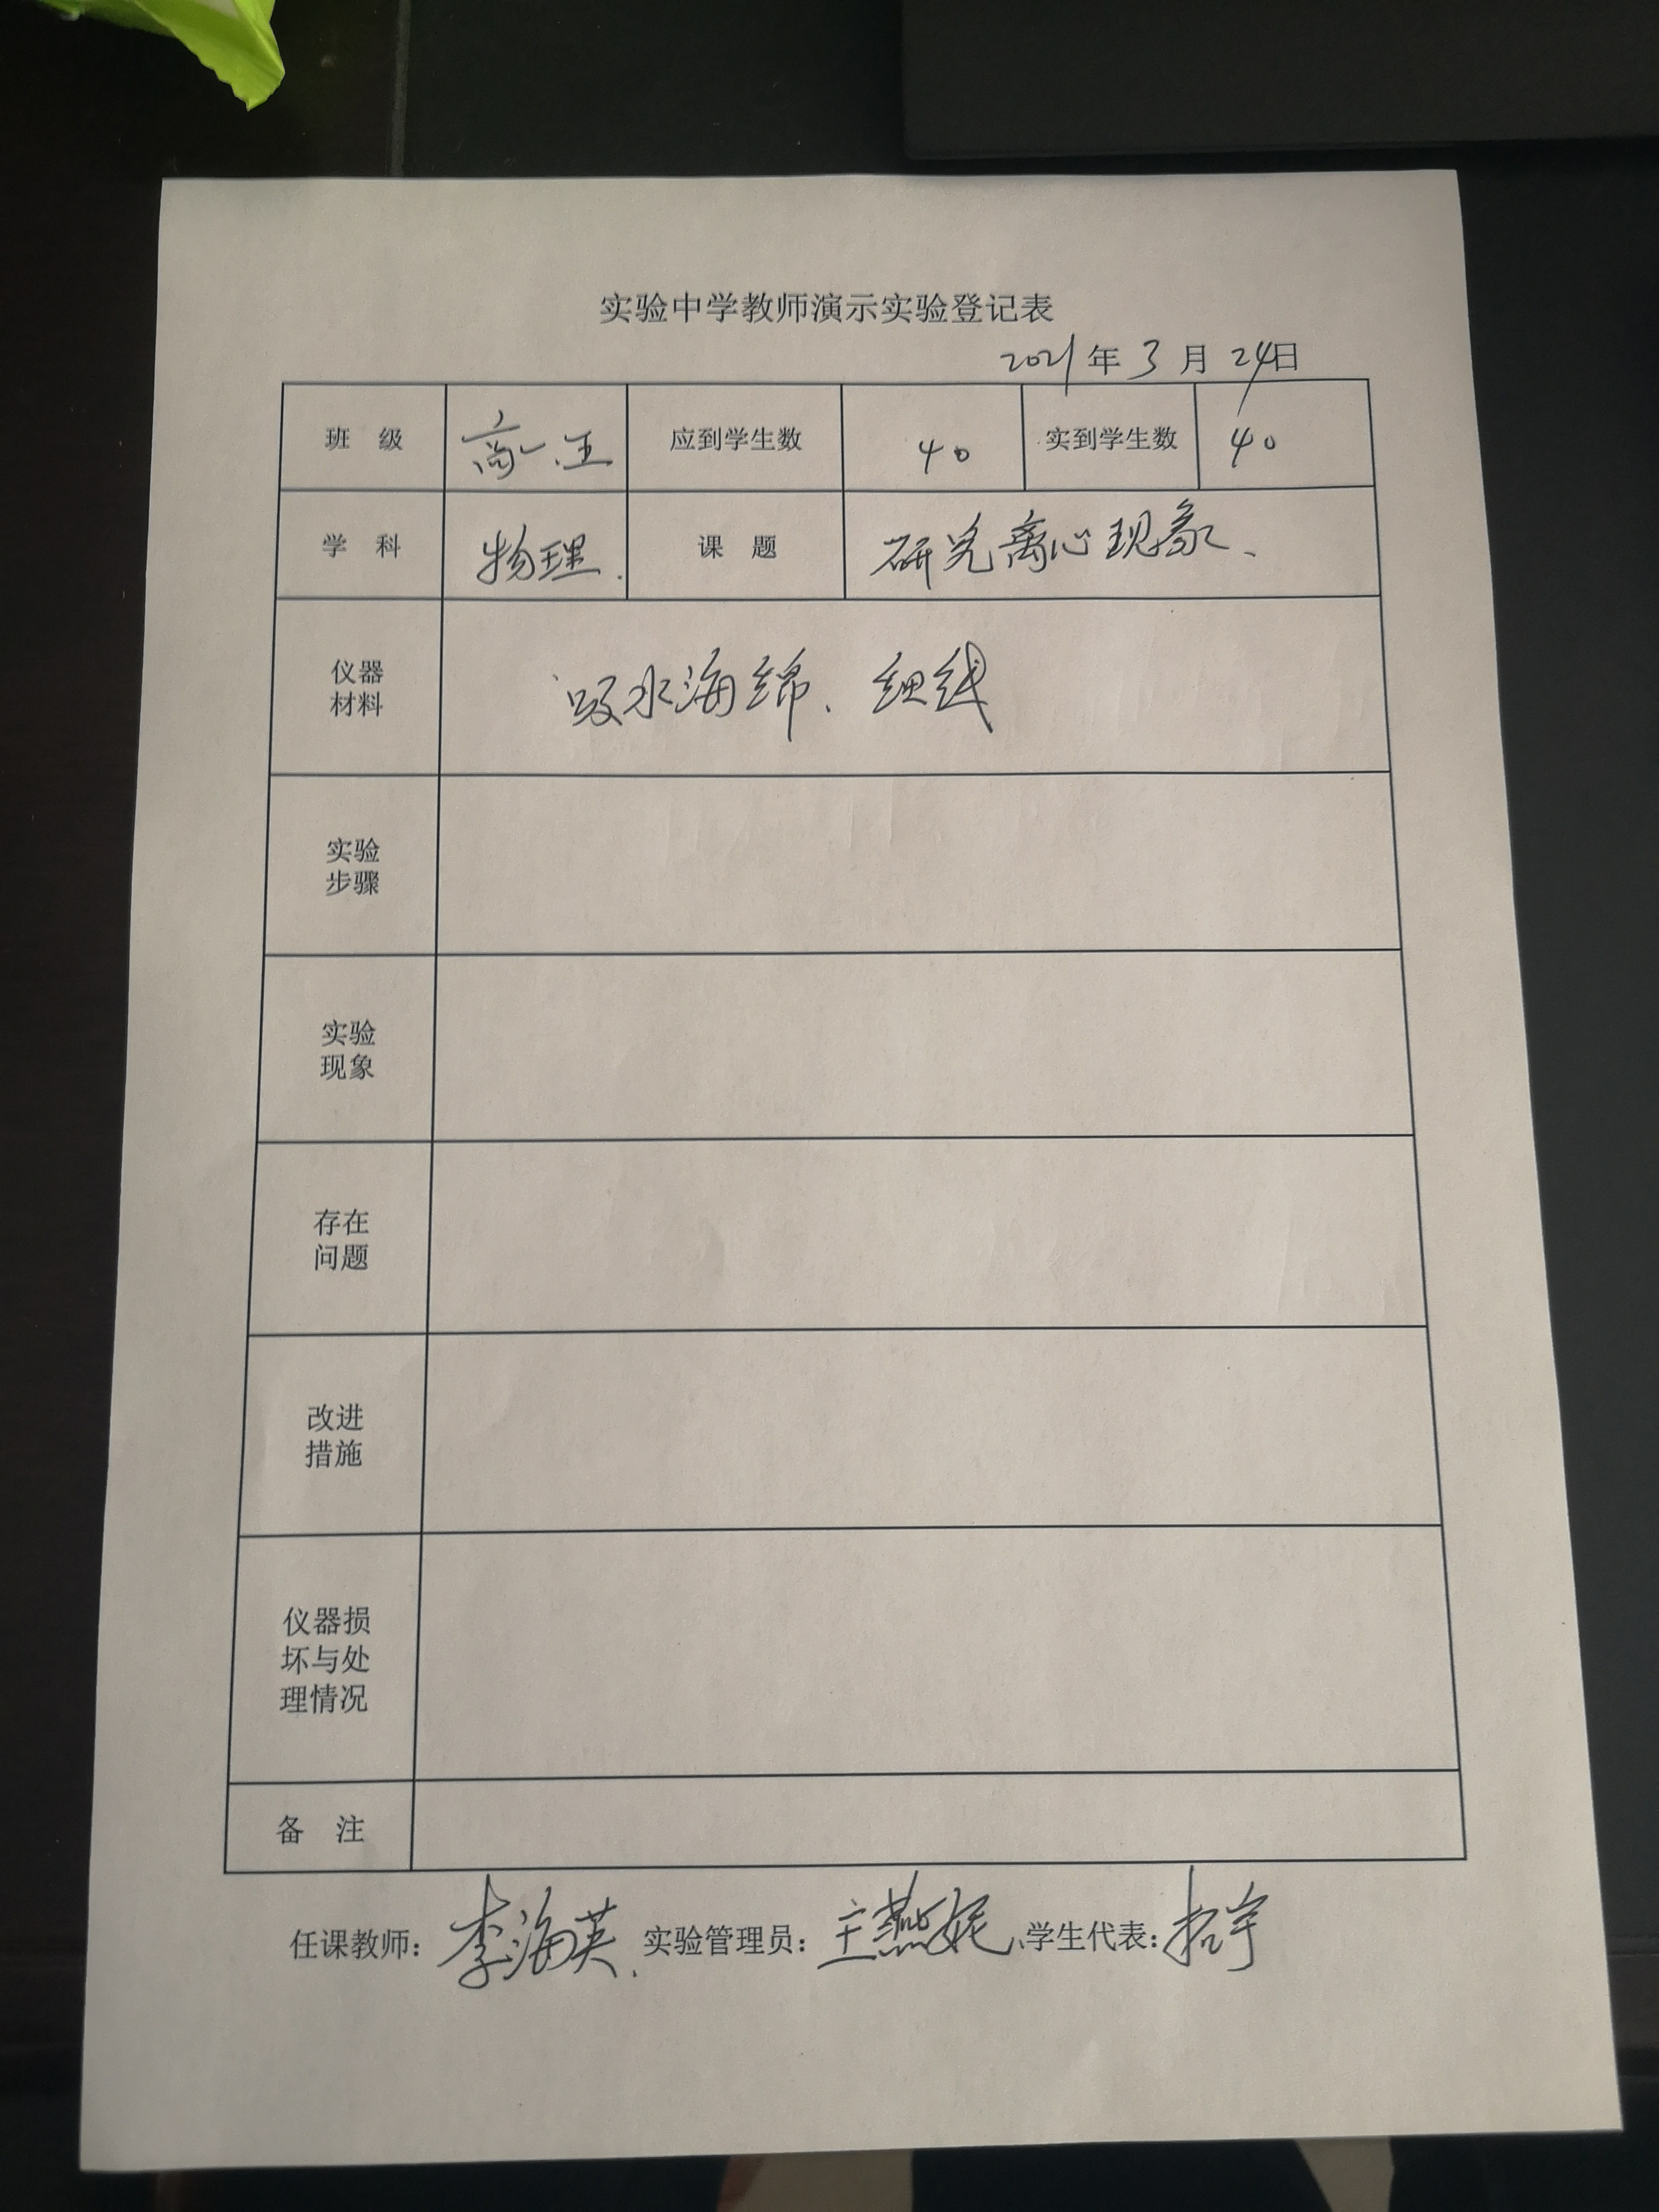 实验中学教师演示实验登记表
2021年3月24日
班 级 高一.五 应到学生数 40 实到学生数 40
学 科 物理. 课 题 研究离心现象、
仪器
材料
吸水海绵、细线
实验
步骤
实验
现象
存在
问题
改进
措施
仪器损
坏与处
理情况
备 注
任课教师: 李海英. 实验管理员: 王燕妮、学生代表: